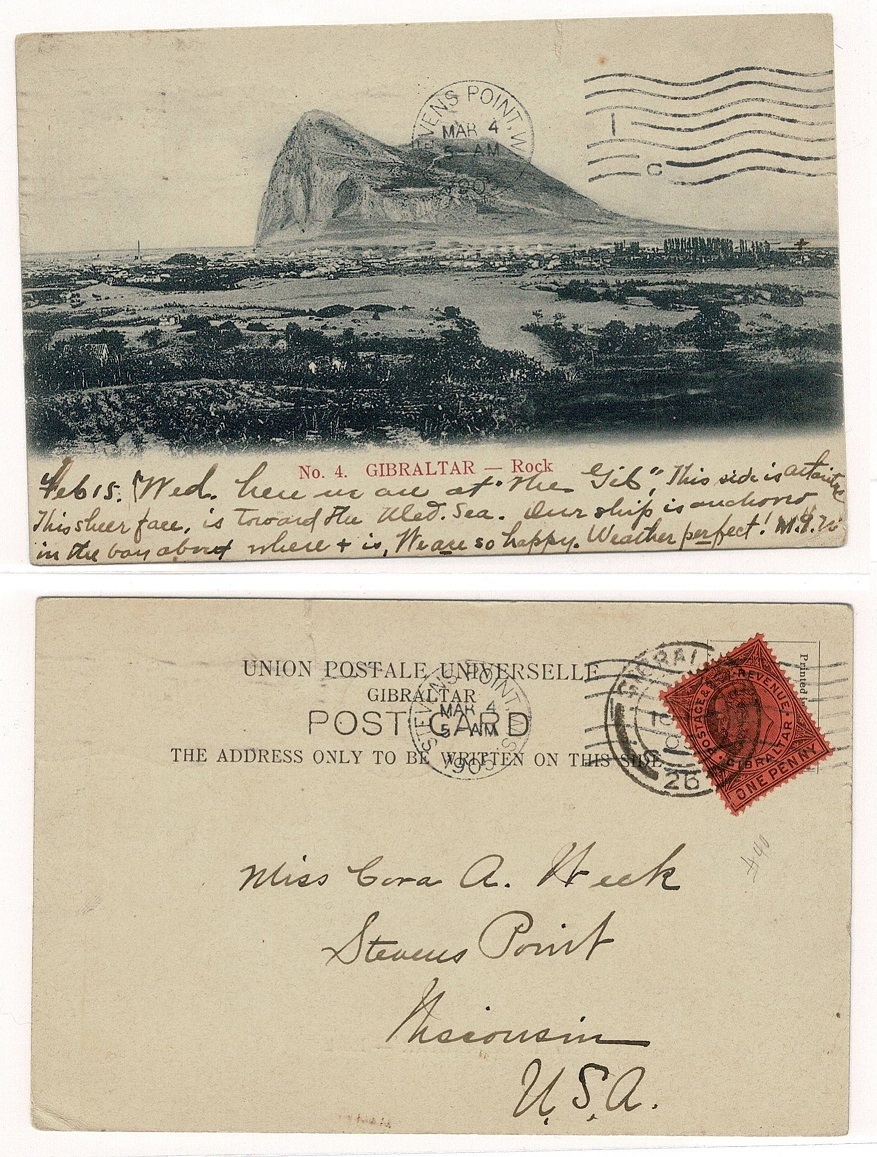 STEVENS POINT, WIS.
MAR 4
5- AM
1905
1
C
No. 4. GIBRALTAR — Rock
Feb 15. Wed. here we are at "the Gib", This side is
This sheer face, is toward the Med. Sea. Our ship is anchored
in the bay about where + is, We are so happy. Weather perfect!
UNION POSTALE UNIVERSELLE
GIBRALTAR
POST CARD
THE ADDRESS ONLY TO BE WRITTEN ON THIS SIDE
STEVENS POINT, WIS.
MAR 4
5- AM
1905
GIBRALTAR
26
POSTAGE & REVENUE
GIBRALTAR
ONE PENNY
Printed
A40
Miss Cora A. Heck
Stevens Point
Wisconsin
U.S.A.